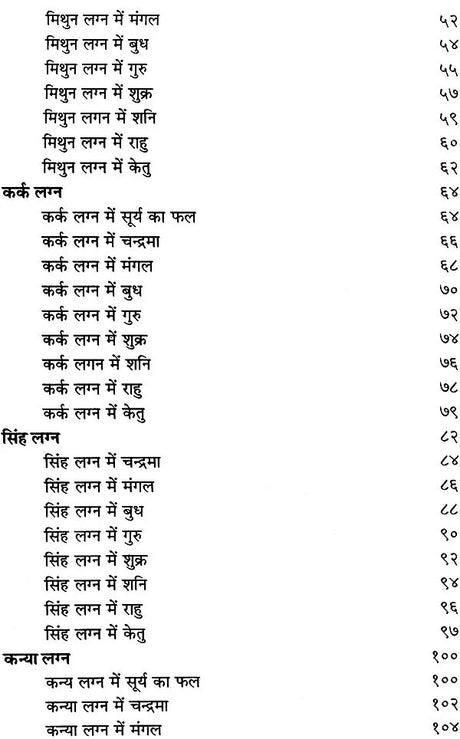 मिथुन लग्न में मंगल ५२
मिथुन लग्न में बुध ५४
मिथुन लग्न में गुरु ५५
मिथुन लग्न में शुक्र ५७
मिथुन लगन में शनि ५९
मिथुन लग्न में राहु ६०
मिथुन लग्न में केतु ६२
कर्क लग्न ६४
कर्क लग्न में सूर्य का फल ६४
कर्क लग्न में चन्द्रमा ६६
कर्क लग्न में मंगल ६८
कर्क लग्न में बुध ७०
कर्क लग्न में गुरु ७२
कर्क लग्न में शुक्र ७४
कर्क लगन में शनि ७६
कर्क लग्न में राहु ७८
कर्क लग्न में केतु ७९
सिंह लग्न ८२
सिंह लग्न में चन्द्रमा ८४
सिंह लग्न में मंगल ८६
सिंह लग्न में बुध ८८
सिंह लग्न में गुरु ९०
सिंह लग्न में शुक्र ९२
सिंह लग्न में शनि ९४
सिंह लग्न में राहु ९६
सिंह लग्न में केतु ९७
कन्या लग्न १००
कन्य लग्न में सूर्य का फल १००
कन्या लग्न में चन्द्रमा १०२
कन्या लग्न में मंगल १०४